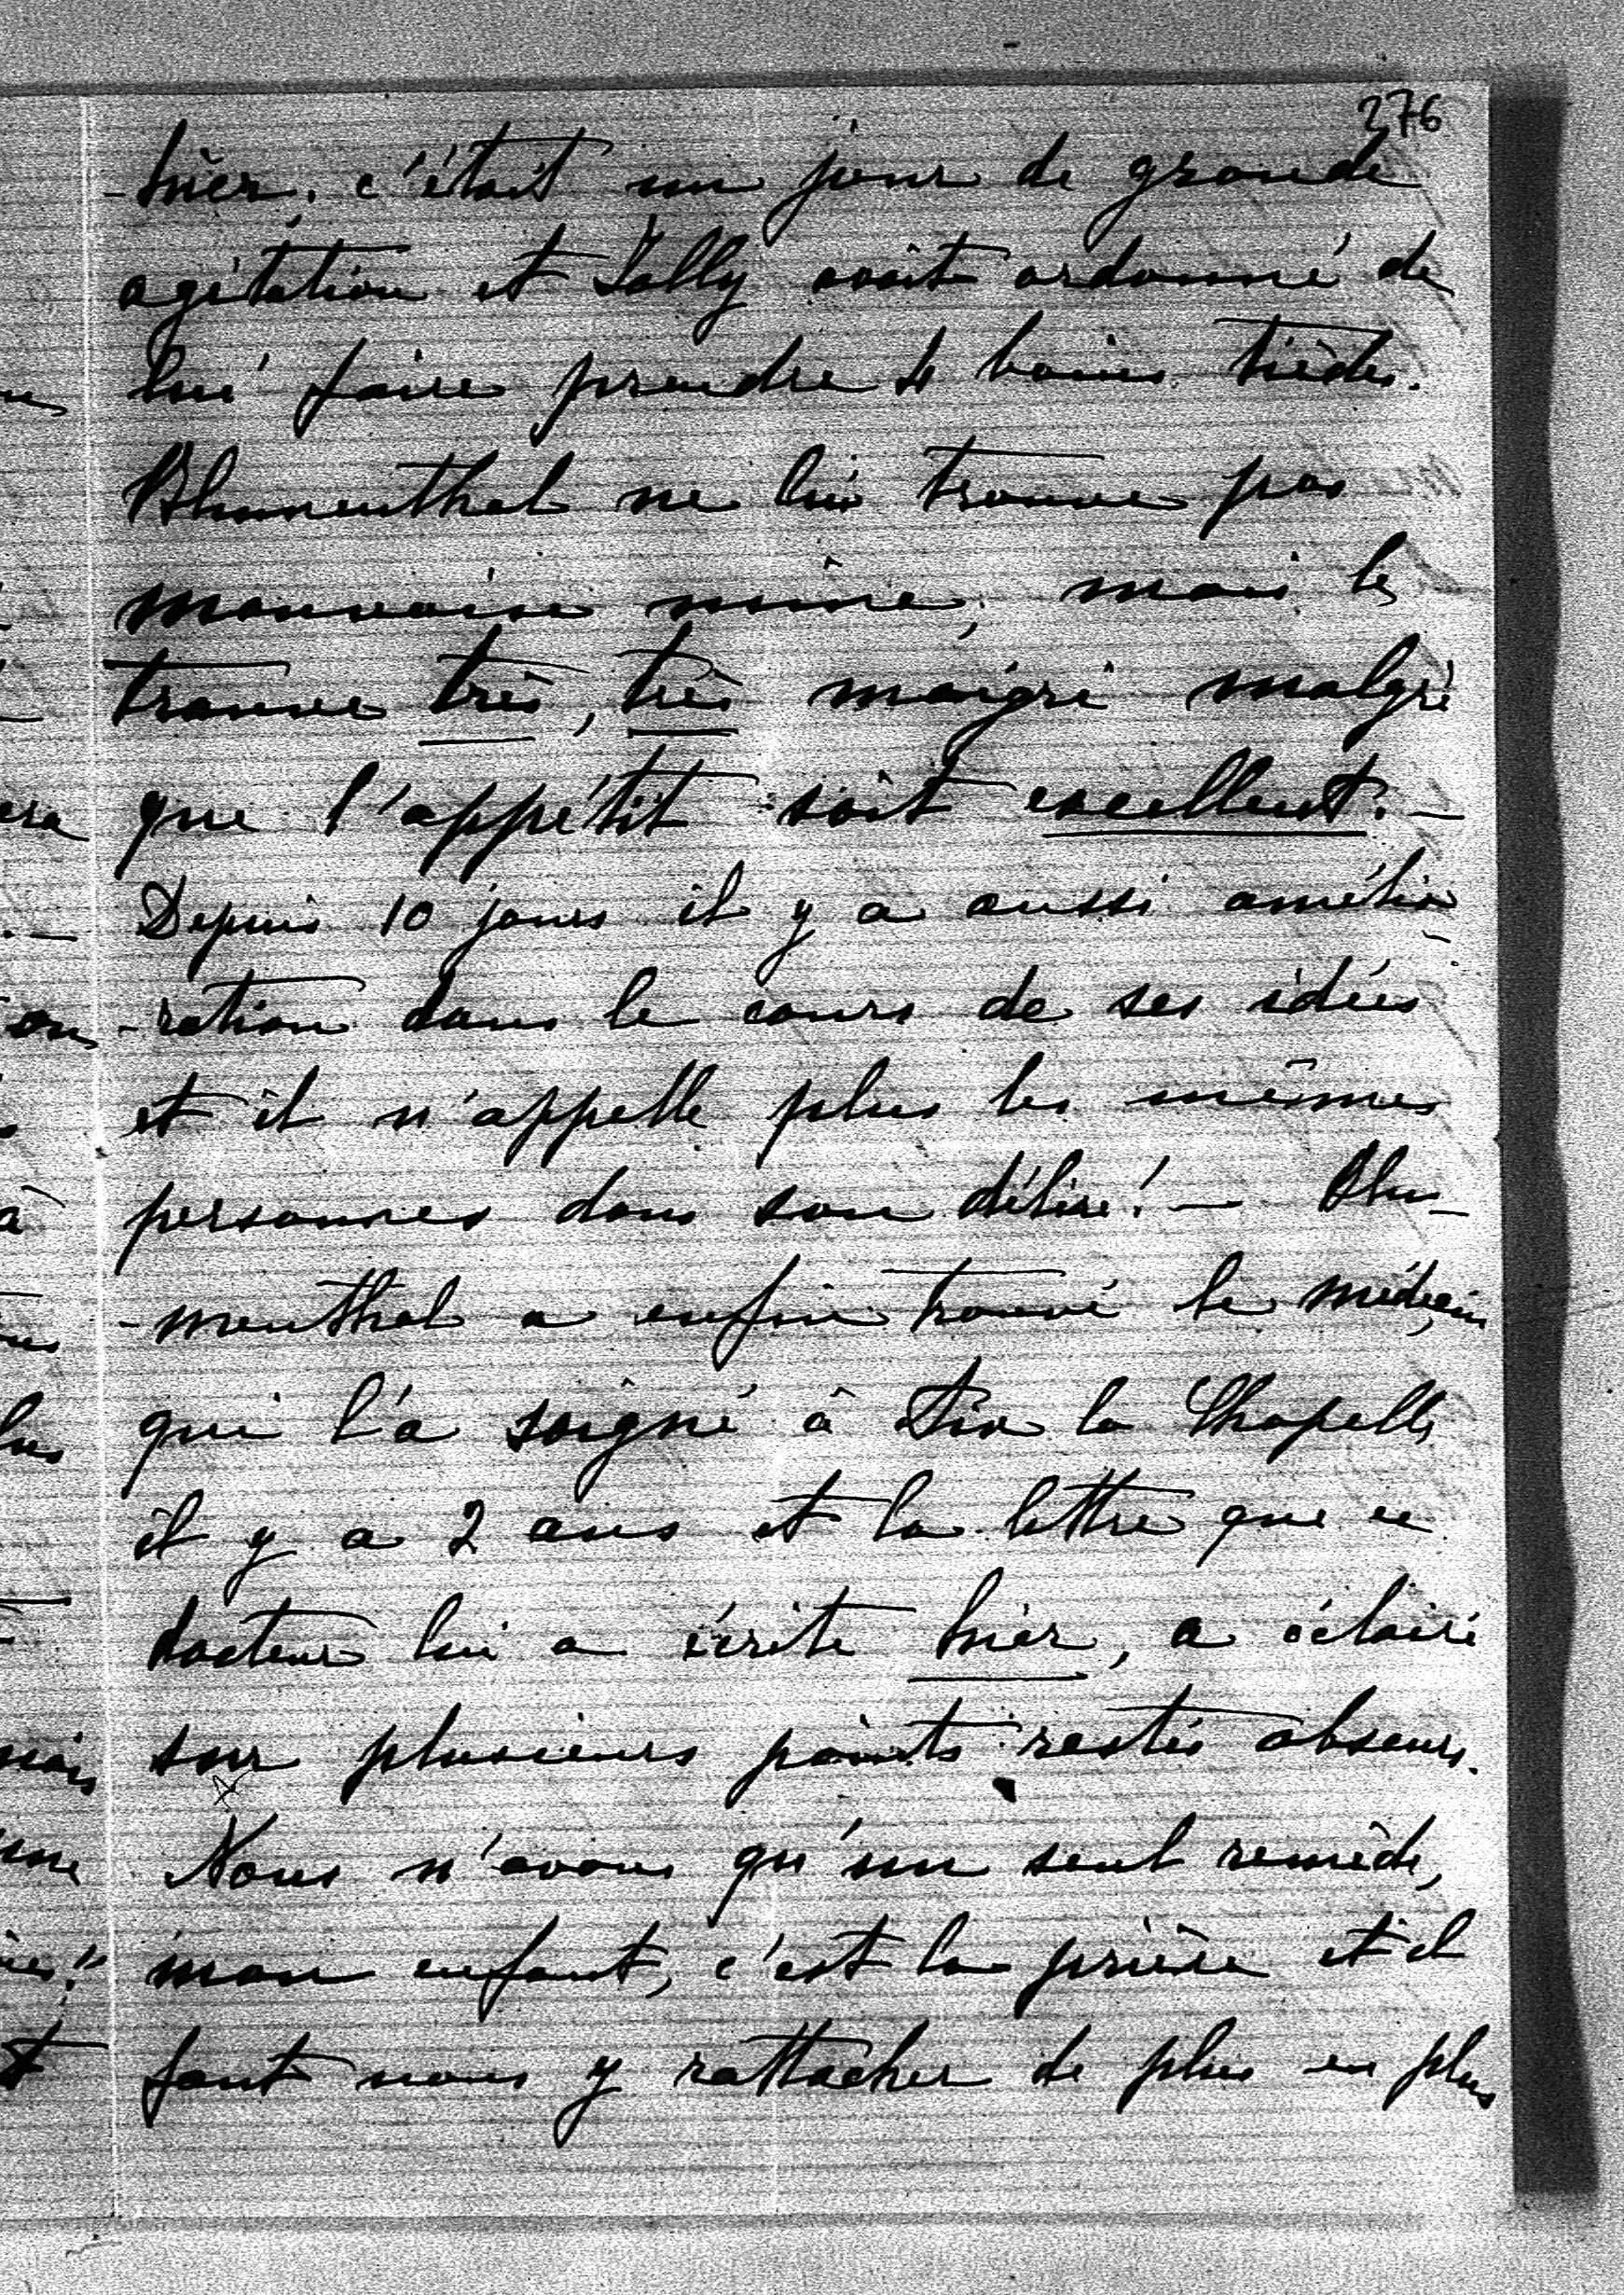 276
-hier, c'était un jour de grande
agitation et Jolly avait ordonné de
lui faire prendre 4 bains tièdes.
Blumenthal ne lui trouve pas
mauvaise mine, mais le
trouve très, très maigri malgré
que l'appétit soit excellent. —
Depuis 10 jours il y a aussi amélio
-ration dans le cours de ses idées
et il n'appelle plus les mêmes
personnes dans son délire! — Blu-
-menthal a enfin trouvé le médecin
qui l'a soigné à Aix la Chapelle
il y a 2 ans et la lettre que ce
docteur lui a écrite hier, a éclairé
sur plusieurs points restés obscurs.
Nous n'avons qu'un seul remède,
mon enfant, c'est la prière et il
faut nous y rattacher de plus en plus